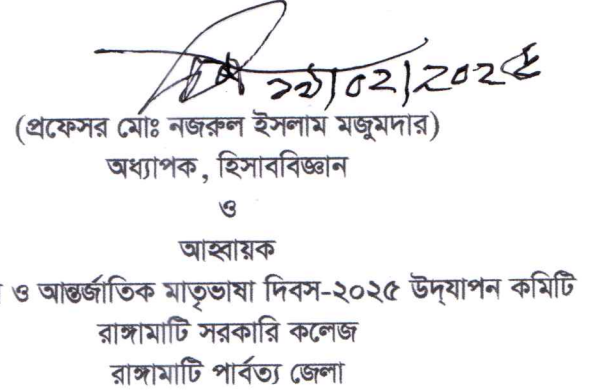 ১৯/০২/২০২৫
(প্রফেসর মোঃ নজরুল ইসলাম মজুমদার)
অধ্যাপক, হিসাববিজ্ঞান
ও
আহ্বায়ক
ও আন্তর্জাতিক মাতৃভাষা দিবস-২০২৫ উদ্‌যাপন কমিটি
রাঙ্গামাটি সরকারি কলেজ
রাঙ্গামাটি পার্বত্য জেলা